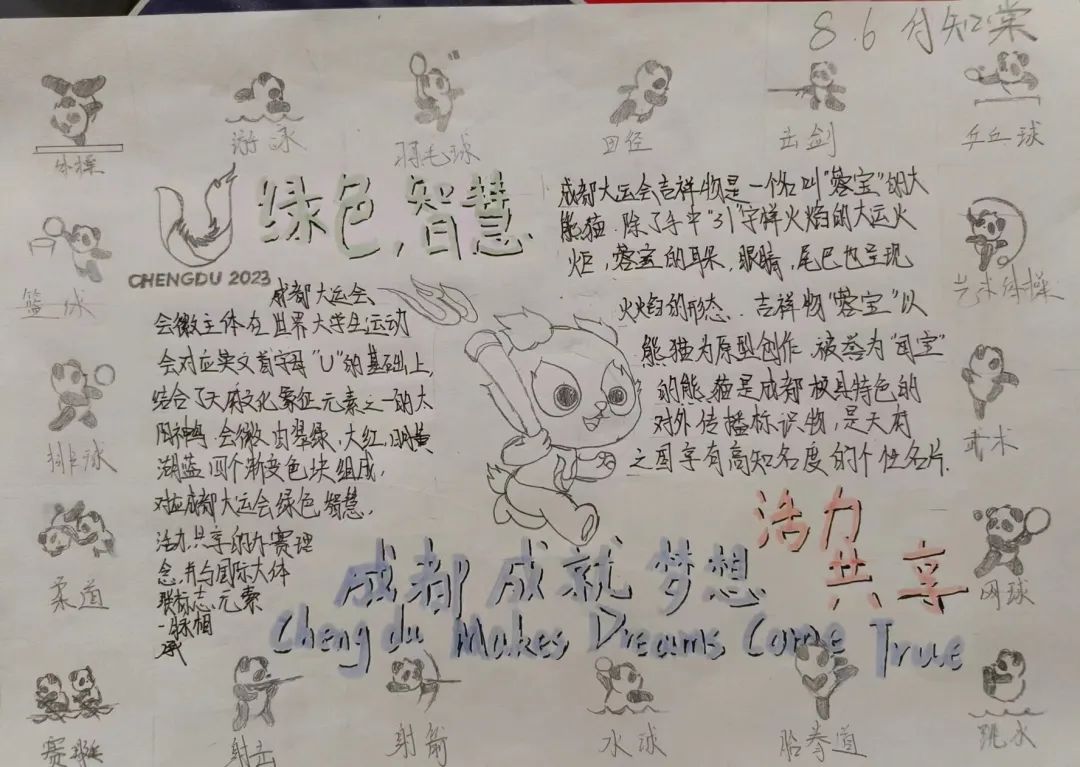 8.6 付知棠
体操
游泳
羽毛球
田径
击剑
乒乓球
篮球
排球
柔道
赛艇
CHENGDU 2023
绿色,智慧
成都大运会
会徽主体在世界大学生运动
会对应英文首字母“U”的基础上,
结合了天府文化象征元素之一的太
阳神鸟,会徽由翠绿,大红,明黄
湖蓝四个渐变色块组成,
对应成都大运会绿色智慧,
活力共享的办赛理
念,并与国际大体
联标志元素
一脉相
承
成都大运会吉祥物是一个名叫“蓉宝”的大
熊猫.除了手中“31”字样火焰的大运火
炬,蓉宝的耳朵,眼睛,尾巴也呈现
火焰的形态.吉祥物“蓉宝”以
熊猫为原型创作.被誉为“国宝”
的熊猫是成都极具特色的
对外传播标识物,是天府
之国享有高知名度的个性名片.
活力
共享
成都成就梦想
Chengdu Makes Dreams Come True
艺术体操
武术
网球
射击
射箭
水球
跆拳道
跳水